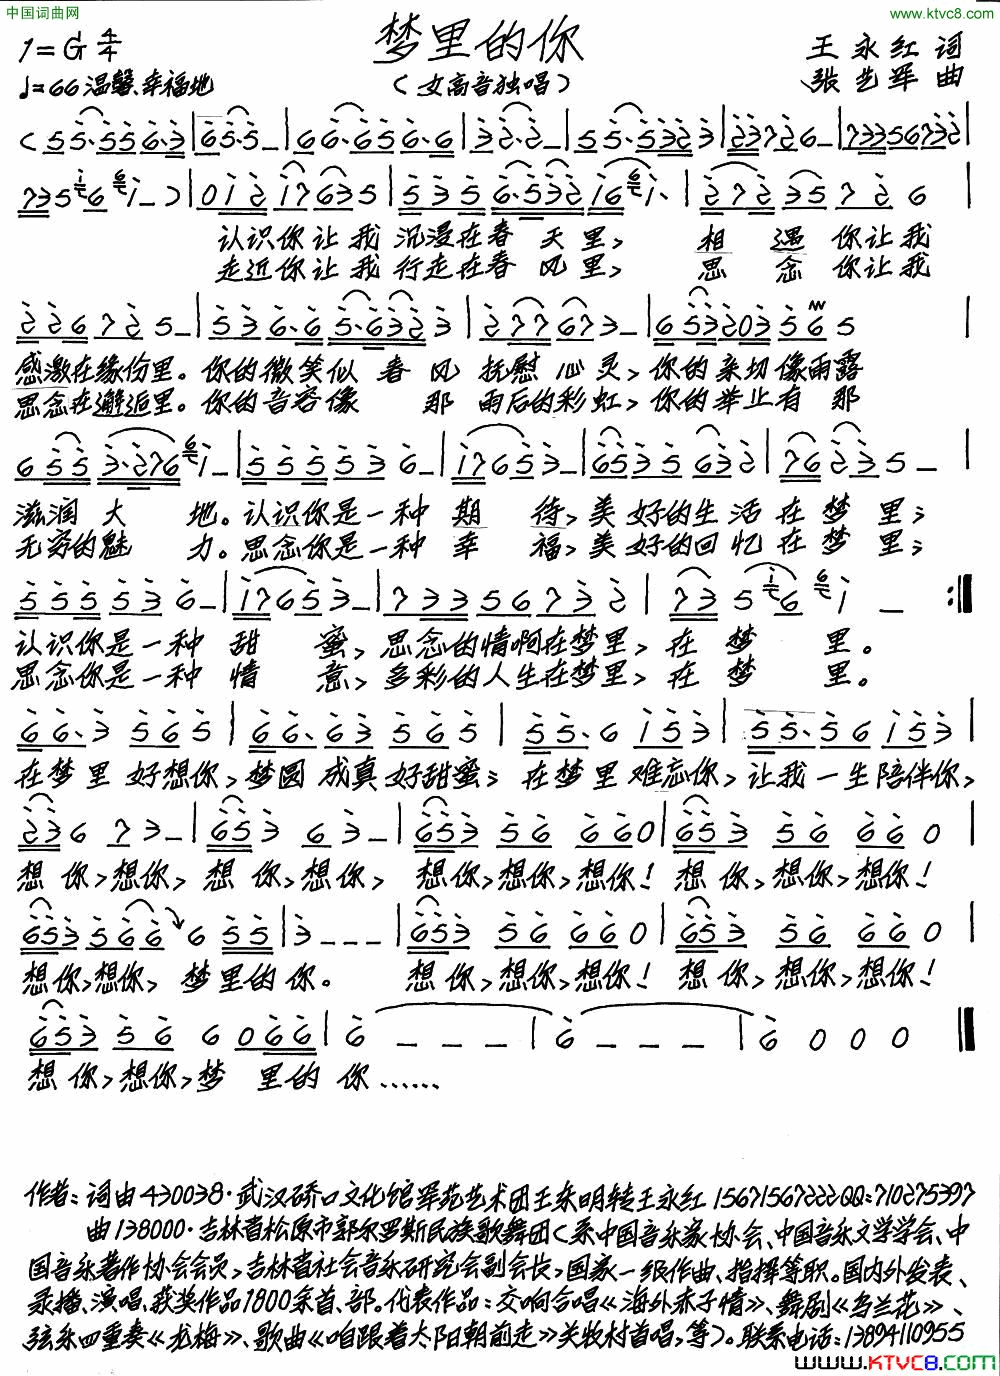 中国词曲网
www.ktvc8.com
梦里的你
1=G 4/4
王永红 词
♩=66 温馨、幸福地
（女高音独唱）
张艺军 曲
认识你让我沉漫在春天里，相遇你让我
走近你让我行走在春风里，思念你让我
感激在缘份里。你的微笑似春风抚慰心灵，你的亲切像雨露
思念在邂逅里。你的音容像那雨后的彩虹，你的举止有那
滋润大地。认识你是一种期待，美好的生活在梦里；
无穷的魅力。思念你是一种幸福，美好的回忆在梦里；
认识你是一种甜蜜，思念的情啊在梦里，在梦里。
思念你是一种情意，多彩的人生在梦里，在梦里。
在梦里好想你，梦圆成真好甜蜜；在梦里难忘你，让我一生陪伴你，
想你，想你，想你，想你，想你，想你，想你！想你，想你，想你！
想你，想你，梦里的你。想你，想你，想你！想你，想你，想你！
想你，想你，梦里的你……
作者：词由430038·武汉硚口文化馆军苑艺术团王东明转王永红15671567222QQ:710275397
曲138000·吉林省松原市郭尔罗斯民族歌舞团（系中国音乐家协会、中国音乐文学学会、中
国音乐著作协会会员，吉林省社会音乐研究会副会长，国家一级作曲、指挥等职。国内外发表、
录播、演唱、获奖作品1800余首、部。代表作品：交响合唱《海外赤子情》、舞剧《乌兰花》、
弦乐四重奏《龙梅》、歌曲《咱跟着太阳朝前走》关牧村首唱，等）。联系电话：13894110955
www.KTVC8.com